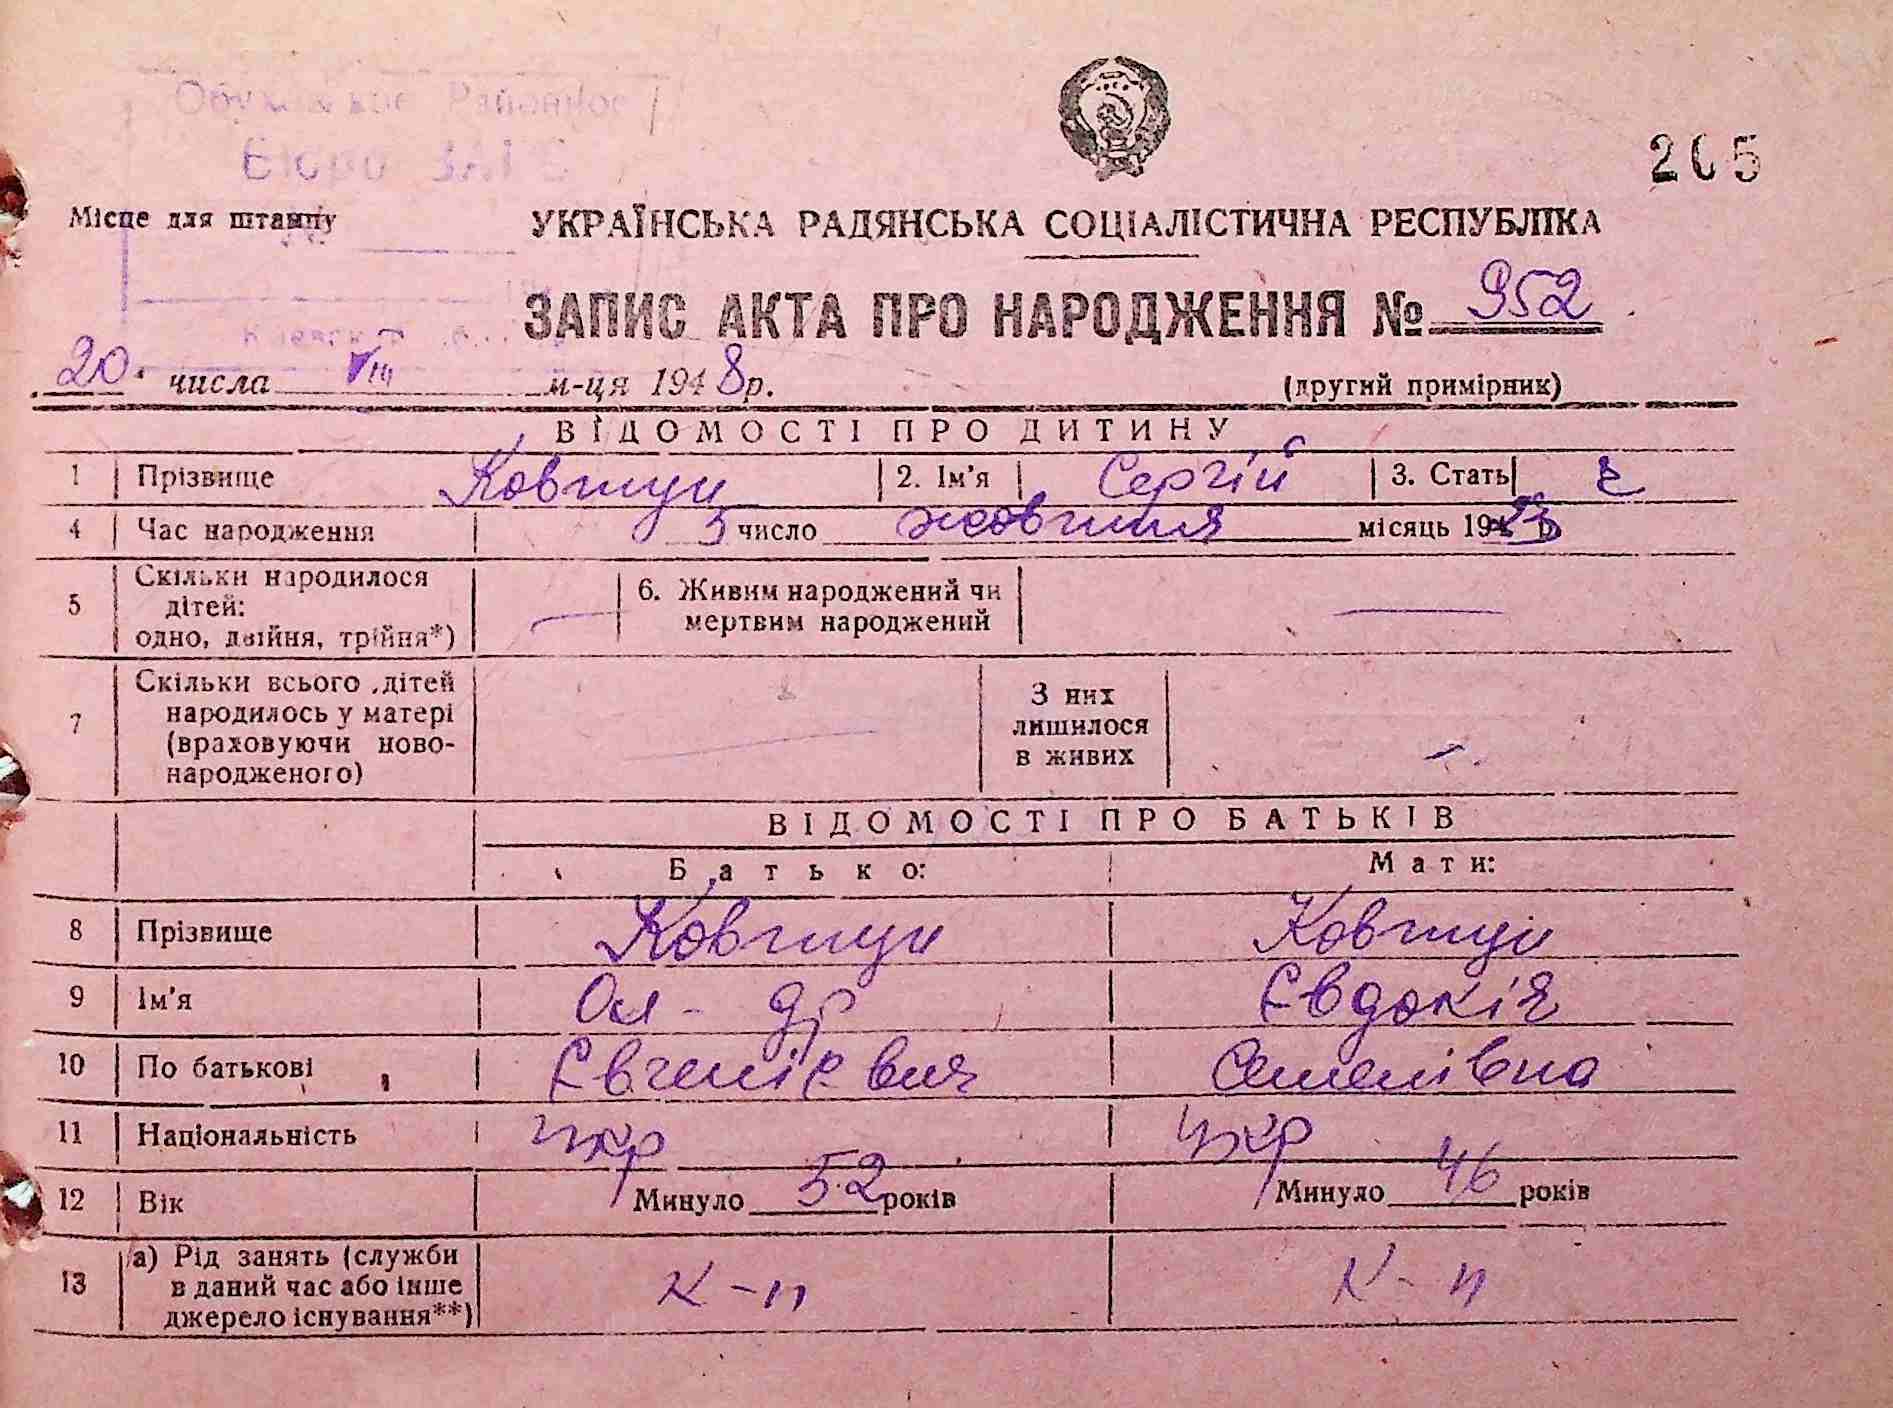 205
Місце для штампу
УКРАЇНСЬКА РАДЯНСЬКА СОЦІАЛІСТИЧНА РЕСПУБЛІКА
ЗАПИС АКТА ПРО НАРОДЖЕННЯ № 952
20 числа VIII м-ця 1948 р.
(другий примірник)
ВІДОМОСТІ ПРО ДИТИНУ
1 Прізвище Ковтун 2. Ім'я Сергій 3. Стать ч
4 Час народження 5 число жовтня місяць 19
5 Скільки народилося дітей: одно, двійня, трійня*) — 6. Живим народжений чи мертвим народжений —
7 Скільки всього дітей народилось у матері (враховуючи ново-народженого) — З них лишилося в живих —
ВІДОМОСТІ ПРО БАТЬКІВ
Батько: Мати:
8 Прізвище Ковтун Ковтун
9 Ім'я Ол-др Євдокія
10 По батькові Євгенієвич Семенівна
11 Національність укр укр
12 Вік Минуло 52 років Минуло 46 років
13 а) Рід занять (служби в даний час або інше джерело існування**) к-п к-п